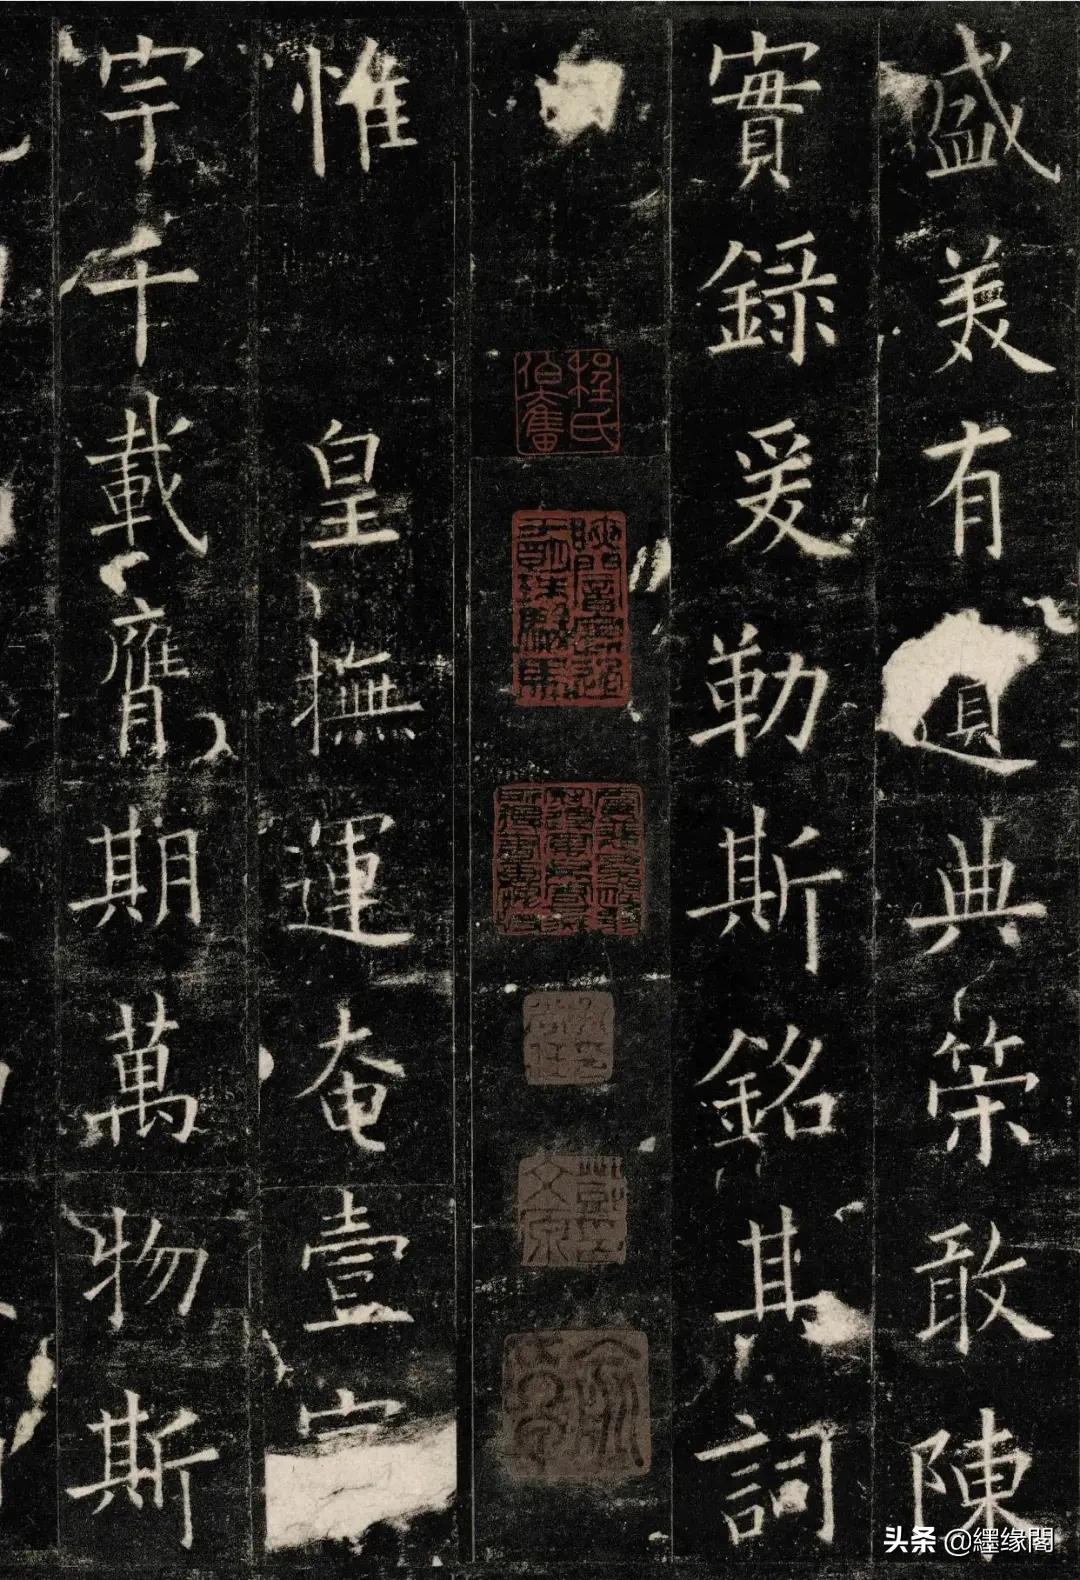 盛美有遺典策敢陳
實錄爰勒斯銘其詞
程氏
惟皇撫運奄壹
宇千載膺期萬物斯
头条 @纆缘閣